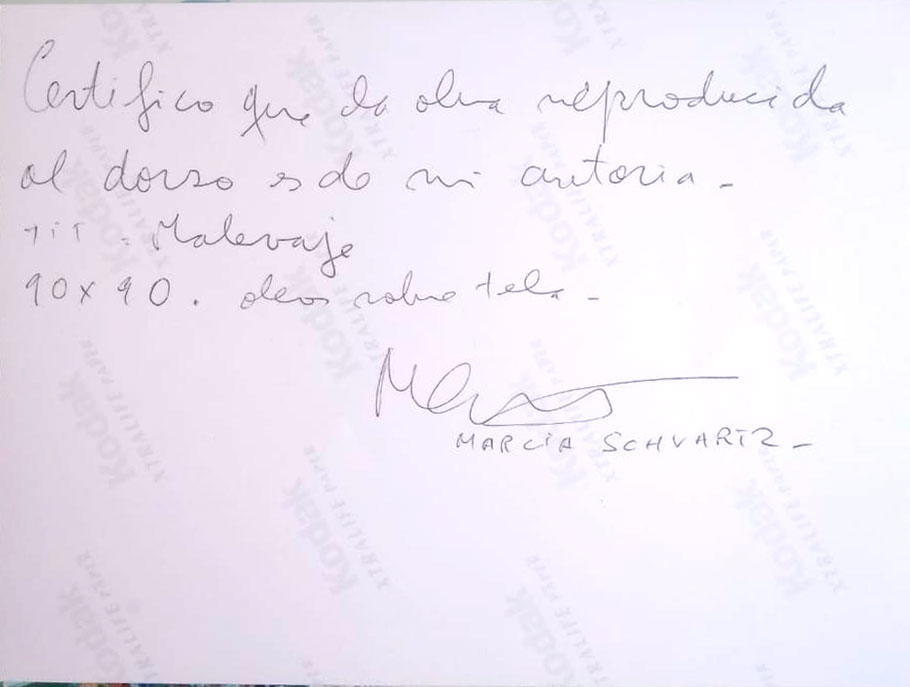 Certifico que la obra reproducida
al dorso es de mi autoria -
TIT. Malevaje
90x90. oleo sobre tela -
MARCIA SCHVARTZ -
Kodak
XTRALIFE PAPER